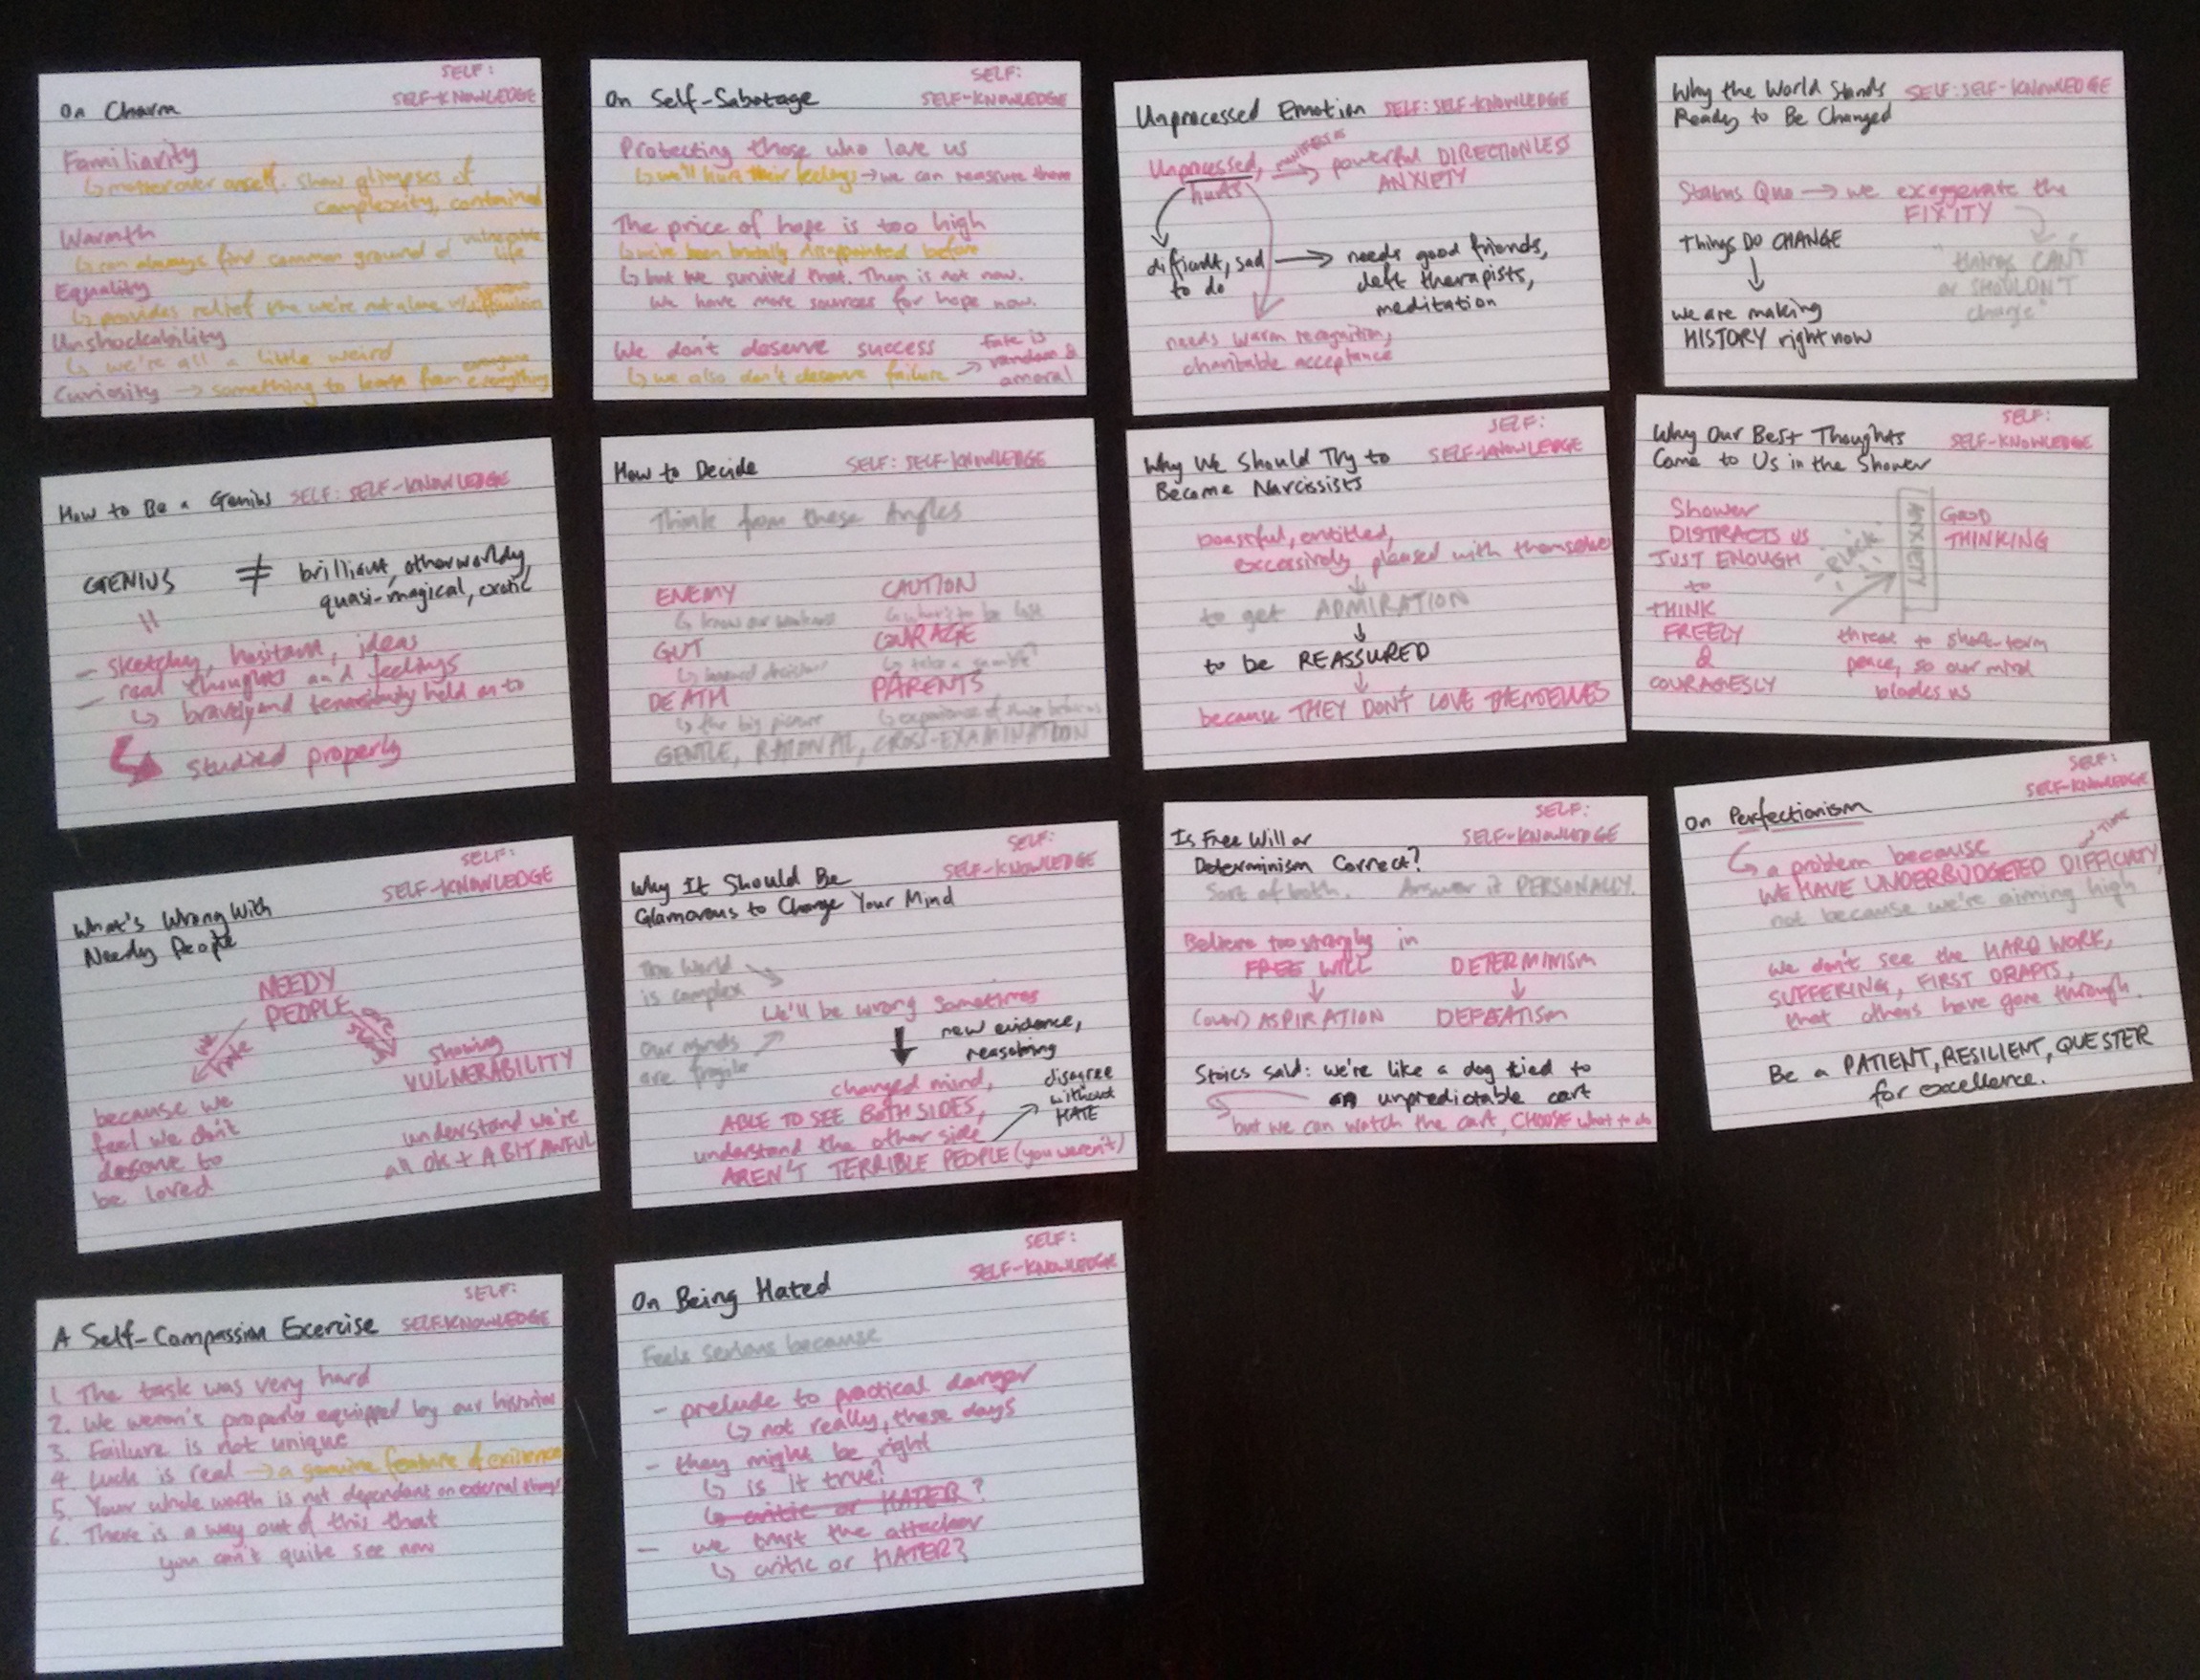 SELF:
On Charm SELF-KNOWLEDGE
Familiarity
↳ matter over oneself. Show glimpses of
complexity, contained
Warmth
↳ can always find common ground of vulnerable
life
Equality
↳ provides relief we're not alone
Unshockability
↳ we're all a little weird
Curiosity → something to learn from everyone
everything
SELF:
On Self-Sabotage SELF-KNOWLEDGE
Protecting those who love us
↳ we'll hurt their feelings → we can reassure them
The price of hope is too high
↳ we've been brutally disappointed before
↳ but we survived that. Then is not now.
We have more sources for hope now.
We don't deserve success
↳ we also don't deserve failure → fate is
random &
amoral
Unprocessed Emotion SELF: SELF-KNOWLEDGE
Unprocessed, MANIFESTS → powerful DIRECTIONLESS
hurts ANXIETY
difficult, sad → needs good friends,
to do deft therapists,
meditation
needs warm recognition,
charitable acceptance
Why the World Stands SELF: SELF-KNOWLEDGE
Ready to Be Changed
Status Quo → we exaggerate the
FIXITY
Things DO CHANGE
"things CAN'T
or SHOULDN'T
change"
we are making
HISTORY right now
How to Be a Genius SELF: SELF-KNOWLEDGE
GENIUS ≠ brilliant, otherworldly,
quasi-magical, exotic
=
- sketchy, hesitant, ideas
- real thoughts and feelings
↳ bravely and tenaciously held on to
↳ studied properly
How to Decide SELF: SELF-KNOWLEDGE
Think from these Angles
ENEMY CAUTION
↳ know our weakness ↳ what's to be lost
GUT COURAGE
↳ decision ↳ take a gamble?
DEATH PARENTS
↳ the big picture ↳ experience of those before us
GENTLE, RATIONAL, CROSS-EXAMINATION
SELF:
Why We Should Try to SELF-KNOWLEDGE
Become Narcissists
boastful, entitled,
excessively pleased with themselves
↓
to get ADMIRATION
↓
to be REASSURED
↓
because THEY DON'T LOVE THEMSELVES
SELF:
Why Our Best Thoughts SELF-KNOWLEDGE
Come to Us in the Shower
Shower
DISTRACTS US
JUST ENOUGH
to
THINK
FREELY
&
COURAGESLY
BLOCK
ANXIETY
GOOD
THINKING
threat to short-term
peace, so our mind
blocks us
SELF:
SELF-KNOWLEDGE
What's Wrong With
Needy People
NEEDY
PEOPLE
we hate
because we
feel we don't
deserve to
be loved
showing
VULNERABILITY
understand we're
all ok + A BIT AWFUL
SELF:
SELF-KNOWLEDGE
Why It Should Be
Glamorous to Change Your Mind
The World
is complex
We'll be wrong sometimes
Our minds
are fragile
new evidence,
reasoning
changed mind,
ABLE TO SEE BOTH SIDES,
understand the other side
disagree
without
HATE
AREN'T TERRIBLE PEOPLE (you weren't)
SELF:
Is Free Will or SELF-KNOWLEDGE
Determinism Correct?
Sort of both. Answer it PERSONALLY.
Believe too strongly in
FREE WILL DETERMINISM
↓ ↓
(over) ASPIRATION DEFEATISM
Stoics said: we're like a dog tied to
an unpredictable cart
but we can watch the cart, CHOOSE what to do
SELF:
SELF-KNOWLEDGE
On Perfectionism
↳ a problem because TIME
WE HAVE UNDERBUDGETED DIFFICULTY,
not because we're aiming high
We don't see the HARD WORK,
SUFFERING, FIRST DRAFTS,
that others have gone through.
Be a PATIENT, RESILIENT, QUESTER
for excellence.
SELF:
A Self-Compassion Excercise SELF-KNOWLEDGE
1. The task was very hard
2. We weren't properly equipped by our histories
3. Failure is not unique
4. Luck is real → a genuine feature of existence
5. Your whole worth is not dependant on external things
6. There is a way out of this that
you can't quite see now
SELF:
SELF-KNOWLEDGE
On Being Hated
Feels Serious because
- prelude to practical danger
↳ not really, these days
- they might be right
↳ is it true?
↳ critic or HATER?
- we trust the attacker
↳ critic or HATER?